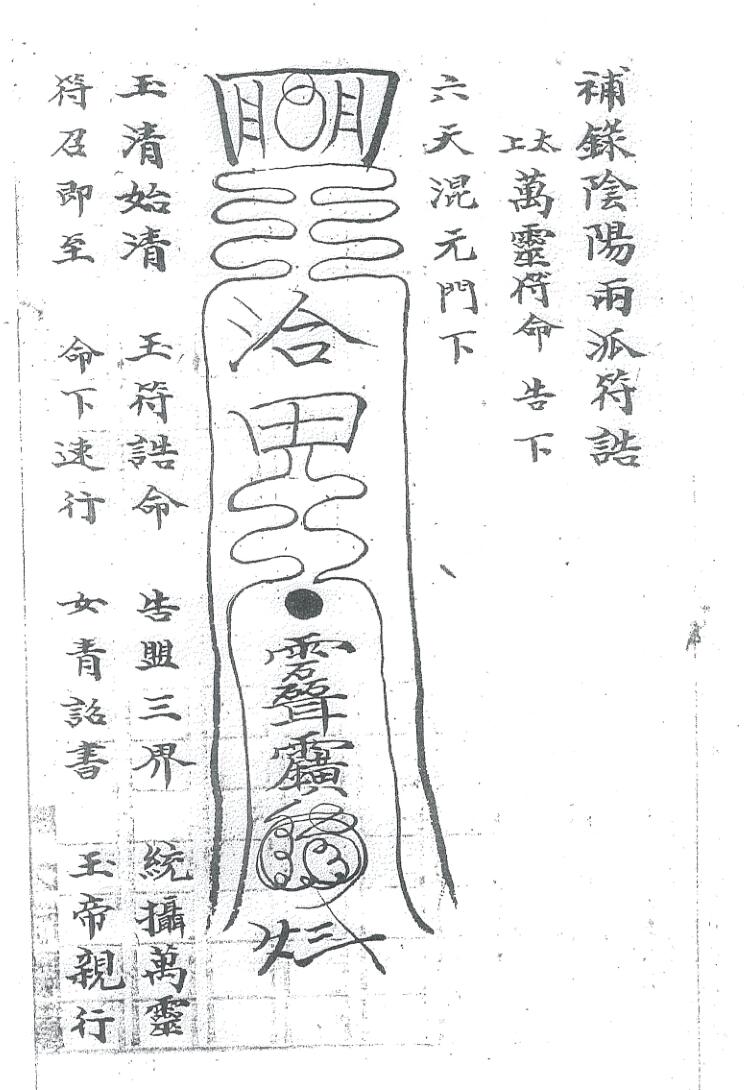 補錄陰陽兩派符誥
太上萬靈符命告下
六天混元門下
玉清始清 玉符誥命 告盟三界 統攝萬靈
符召即至 命下速行 女青詔書 玉帝親行